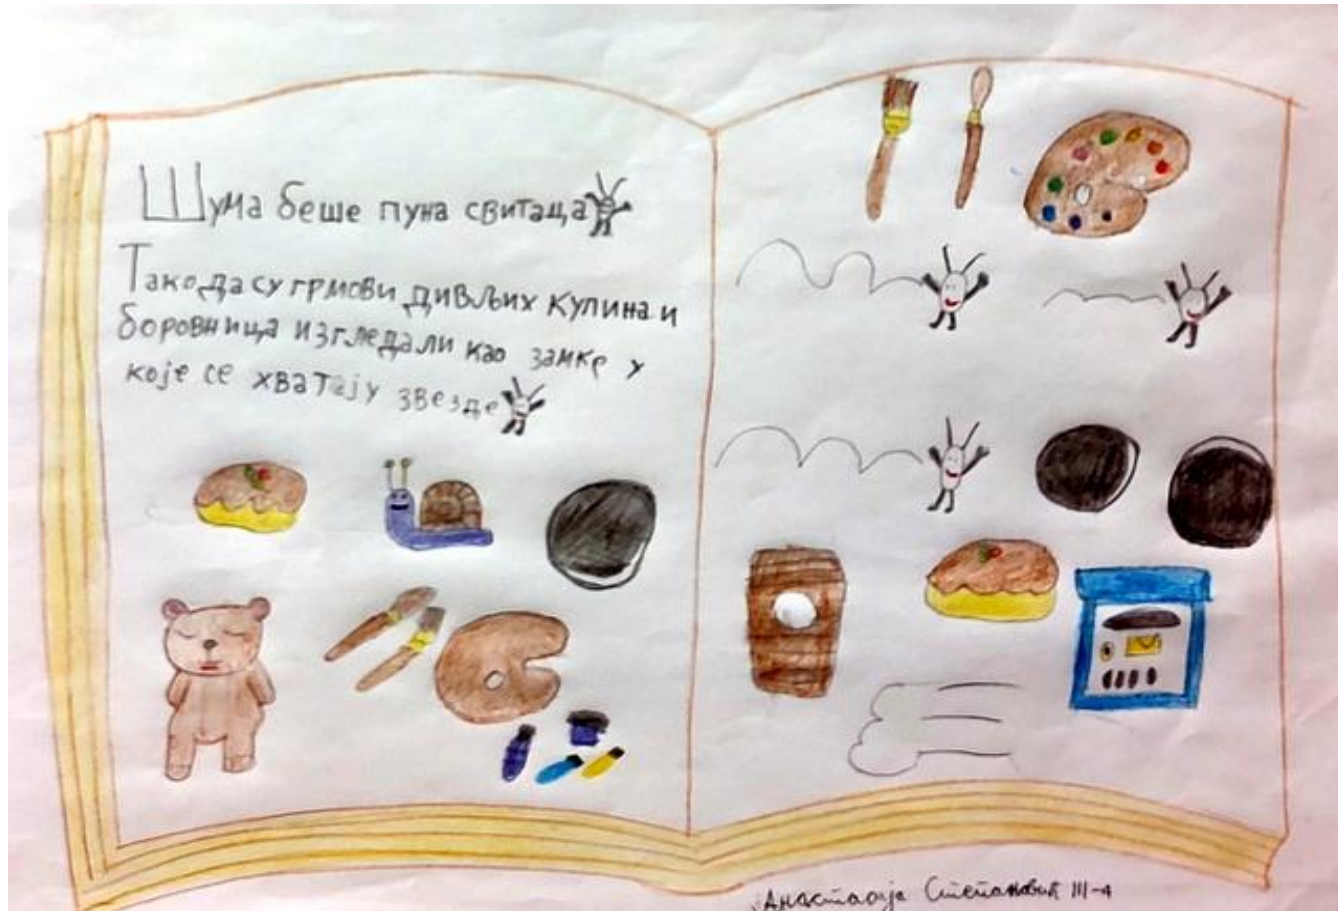 Шума беше пуна свитаца
Тако да су грмови дивљих купина и
боровница изгледали као замке у
које се хватају звезде
Анастасија Степановић III-4